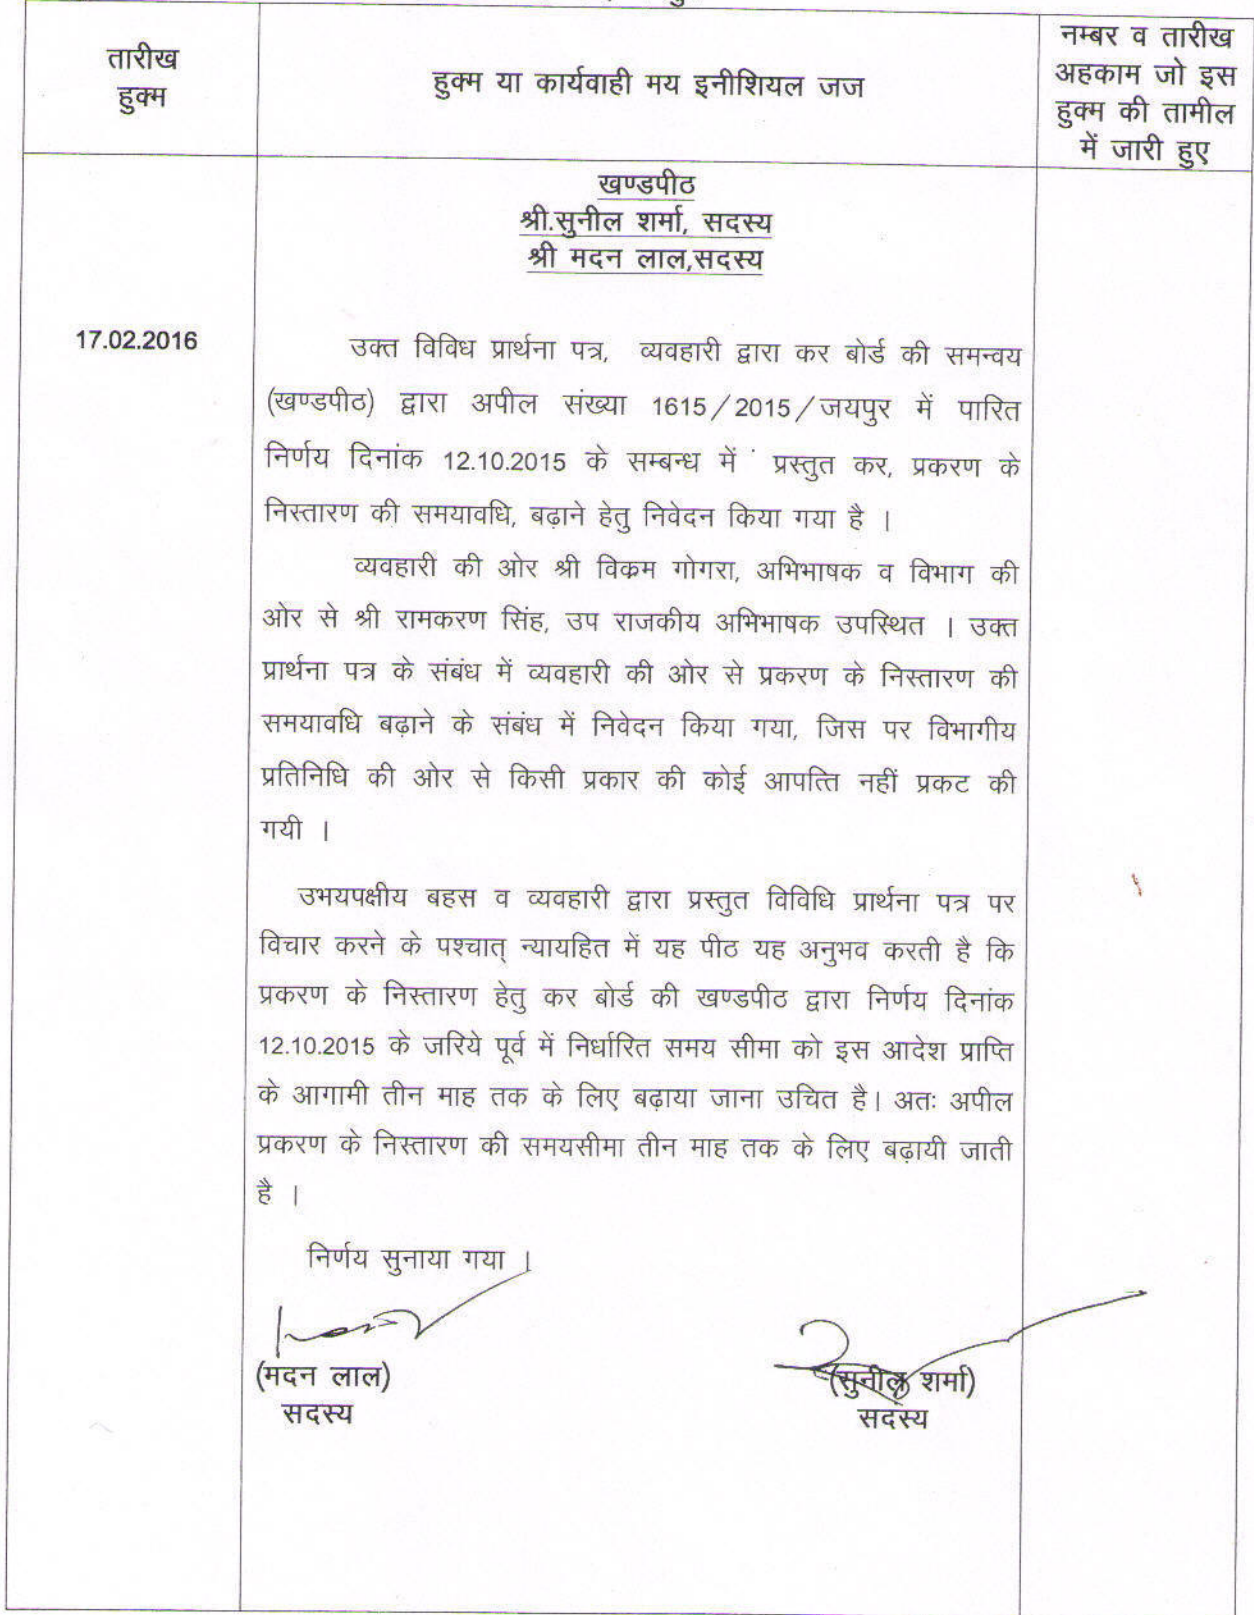 तारीख
हुक्म
हुक्म या कार्यवाही मय इनीशियल जज
नम्बर व तारीख
अहकाम जो इस
हुक्म की तामील
में जारी हुए
खण्डपीठ
श्री.सुनील शर्मा, सदस्य
श्री मदन लाल,सदस्य
17.02.2016
उक्त विविध प्रार्थना पत्र, व्यवहारी द्वारा कर बोर्ड की समन्वय
(खण्डपीठ) द्वारा अपील संख्या 1615/2015/जयपुर में पारित
निर्णय दिनांक 12.10.2015 के सम्बन्ध में प्रस्तुत कर, प्रकरण के
निस्तारण की समयावधि, बढ़ाने हेतु निवेदन किया गया है ।
व्यवहारी की ओर श्री विक्रम गोगरा, अभिभाषक व विभाग की
ओर से श्री रामकरण सिंह, उप राजकीय अभिभाषक उपस्थित । उक्त
प्रार्थना पत्र के संबंध में व्यवहारी की ओर से प्रकरण के निस्तारण की
समयावधि बढ़ाने के संबंध में निवेदन किया गया, जिस पर विभागीय
प्रतिनिधि की ओर से किसी प्रकार की कोई आपत्ति नहीं प्रकट की
गयी ।
उभयपक्षीय बहस व व्यवहारी द्वारा प्रस्तुत विविधि प्रार्थना पत्र पर
विचार करने के पश्चात् न्यायहित में यह पीठ यह अनुभव करती है कि
प्रकरण के निस्तारण हेतु कर बोर्ड की खण्डपीठ द्वारा निर्णय दिनांक
12.10.2015 के जरिये पूर्व में निर्धारित समय सीमा को इस आदेश प्राप्ति
के आगामी तीन माह तक के लिए बढ़ाया जाना उचित है। अतः अपील
प्रकरण के निस्तारण की समयसीमा तीन माह तक के लिए बढ़ायी जाती
है ।
निर्णय सुनाया गया ।
(मदन लाल)
सदस्य
(सुनील शर्मा)
सदस्य